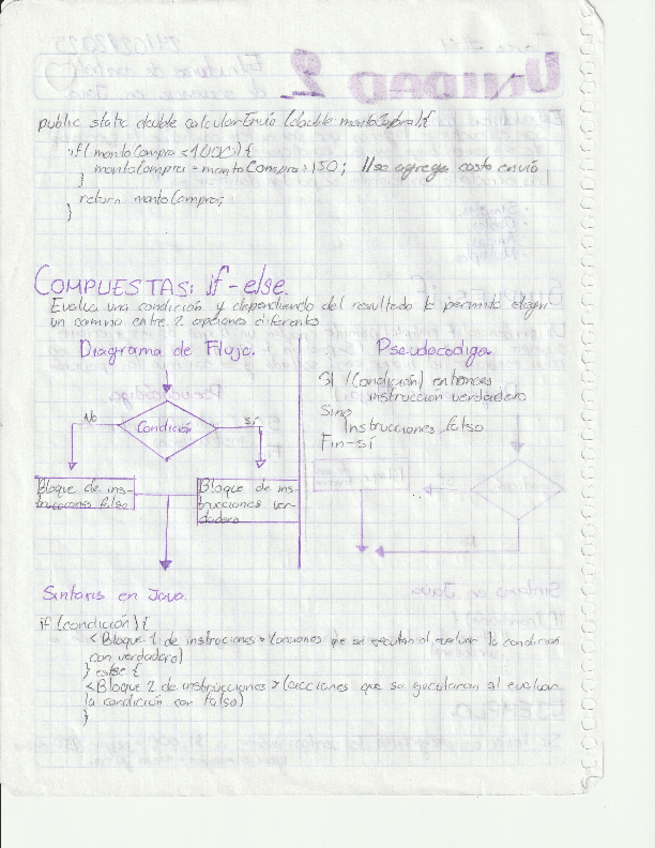 public static double calcularEnvio (double montoCompra){
if( montoCompra <1000) {
montoCompra = montoCompra +150; //se agrega costo envió
}
return montoCompra;
}
COMPUESTAS: if-else.
Evalua una condición y dependiendo del resultado te permite elegir
un camino entre 2 opciones diferente
Diagrama de Flujo.
Condición
No
sí
Bloque de ins-
trucciones falso
Bloque de ins-
trucciones ver-
dadero
Pseudocodigo.
SI (Condición) entonces
instrucción verdadero
Sino
Instrucciones falso
Fin-sí
Sintaxis en Java.
if (condición) {
<Bloque 1 de instruciones> (acciones que se ejecutan al evaluar la condición
con verdadero)
} else {
<Bloque 2 de instrucciones> (acciones que se ejecutaran al evaluar
la condición con falso)
}